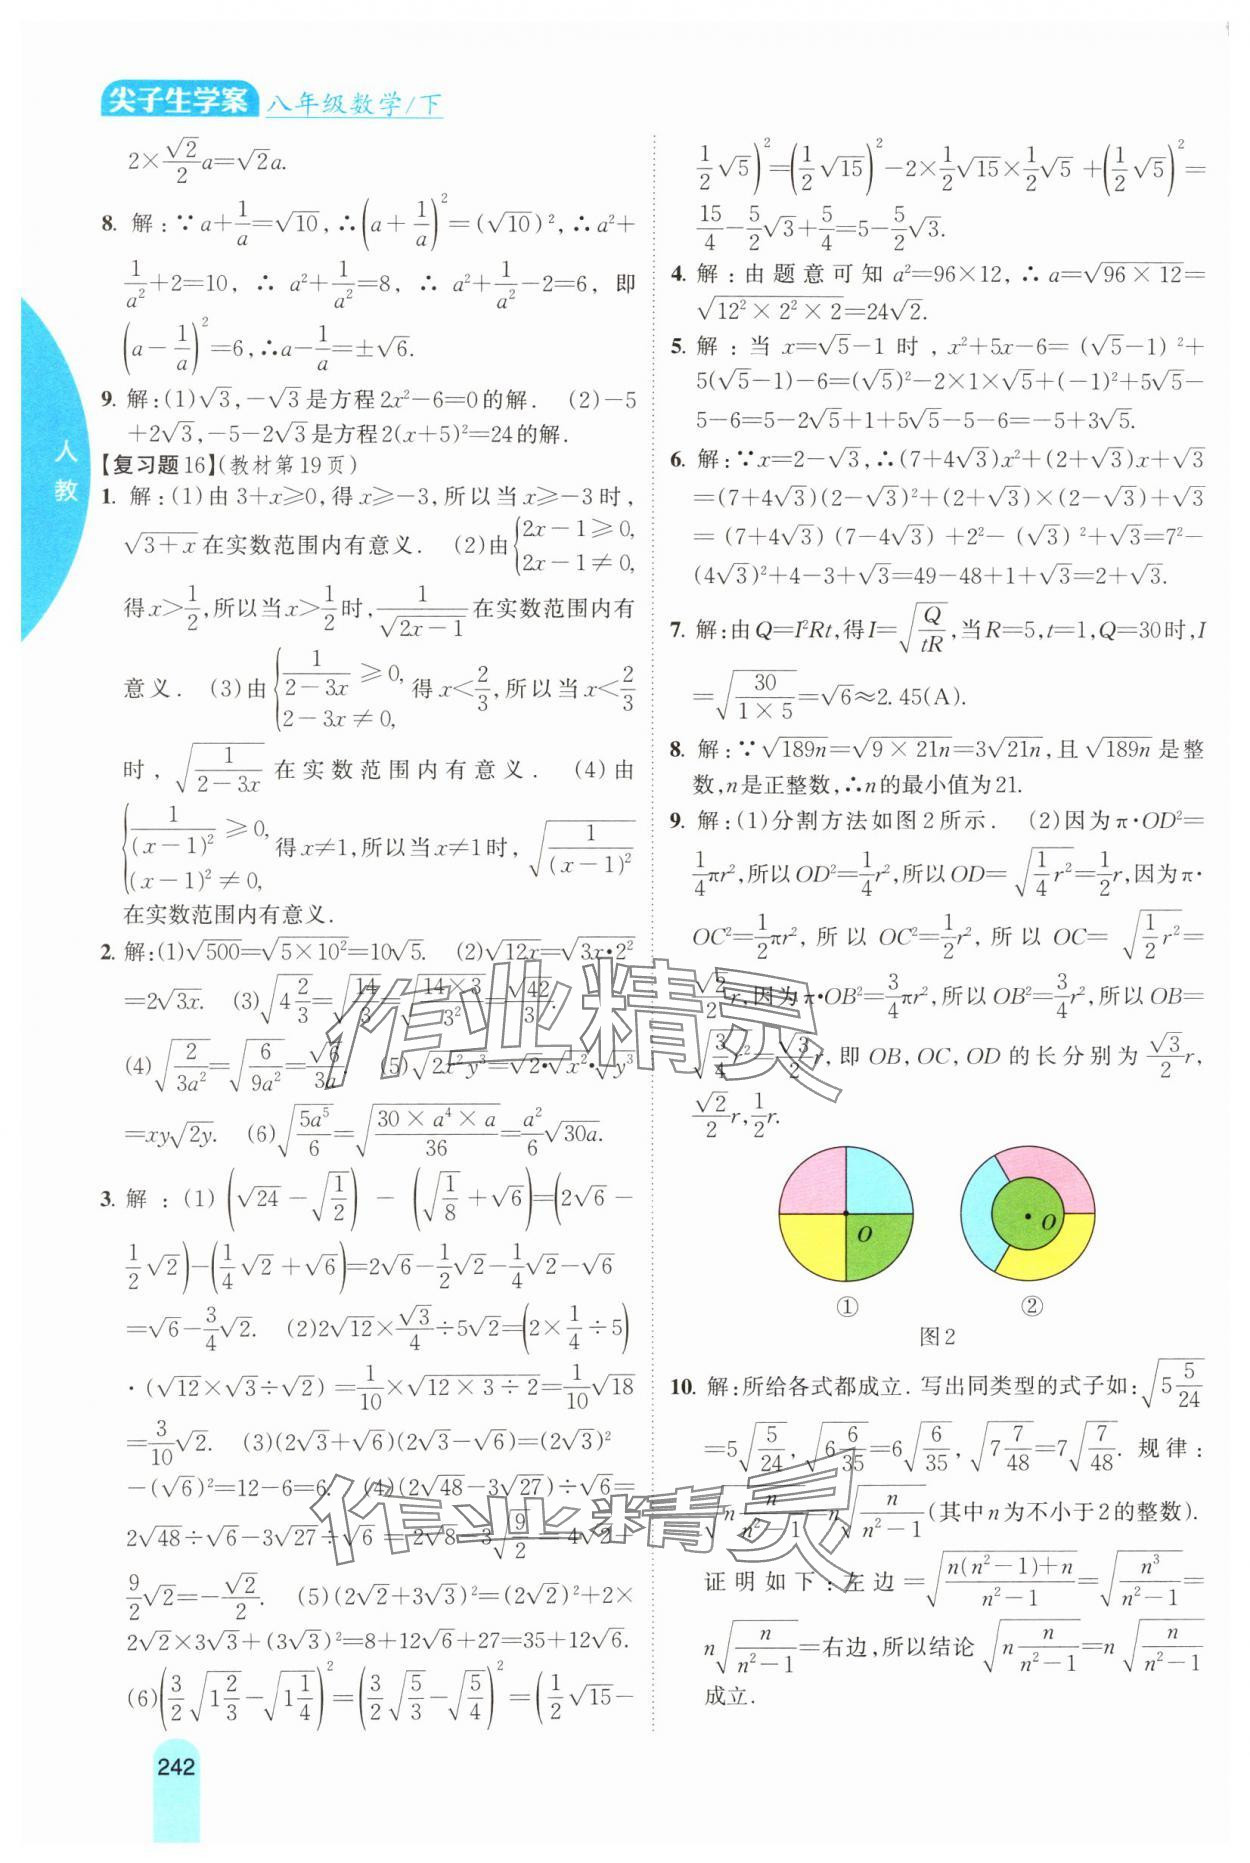 尖子生学案 八年级数学/下
人教
2×\frac{√2}{2}a=√2a.
8. 解:∵a+\frac{1}{a}=√10,∴(a+\frac{1}{a})²=(√10)²,∴a²+
\frac{1}{a²}+2=10,∴a²+\frac{1}{a²}=8,∴a²+\frac{1}{a²}-2=6,即
(a-\frac{1}{a})²=6,∴a-\frac{1}{a}=±√6.
9. 解:(1)√3,-√3是方程2x²-6=0的解. (2)-5
+2√3,-5-2√3是方程2(x+5)²=24的解.
【复习题16】(教材第19页)
1. 解:(1)由3+x≥0,得x≥-3,所以当x≥-3时,
√(3+x)在实数范围内有意义. (2)由{2x-1≥0, 2x-1≠0,
得x>\frac{1}{2},所以当x>\frac{1}{2}时,\frac{1}{√(2x-1)}在实数范围内有
意义. (3)由{\frac{1}{2-3x}≥0, 2-3x≠0, 得x<\frac{2}{3},所以当x<\frac{2}{3}
时,√(\frac{1}{2-3x})在实数范围内有意义. (4)由
{\frac{1}{(x-1)²}≥0, (x-1)²≠0, 得x≠1,所以当x≠1时,√(\frac{1}{(x-1)²})
在实数范围内有意义.
2. 解:(1)√500=√(5×10²)=10√5. (2)√(12x)=√(3x·2²)
=2√(3x). (3)√(4\frac{2}{3})=√(\frac{14}{3})=√(\frac{14×3}{3²})=\frac{√42}{3}.
(4)√(\frac{2}{3a²})=√(\frac{6}{9a²})=\frac{√6}{3a}. (5)√(2x²y³)=√2·√(x²)·√(y³)
=xy√(2y). (6)√(\frac{5a⁵}{6})=√(\frac{30×a⁴×a}{36})=\frac{a²}{6}√(30a).
3. 解:(1)(√24-√(\frac{1}{2}))-(√(\frac{1}{8})+√6)=(2√6-
\frac{1}{2}√2)-(\frac{1}{4}√2+√6)=2√6-\frac{1}{2}√2-\frac{1}{4}√2-√6
=√6-\frac{3}{4}√2. (2)2√12×\frac{√3}{4}÷5√2=(2×\frac{1}{4}÷5)
·(√12×√3÷√2)=\frac{1}{10}×√(12×3÷2)=\frac{1}{10}√18
=\frac{3}{10}√2. (3)(2√3+√6)(2√3-√6)=(2√3)²
-(√6)²=12-6=6. (4)(2√48-3√27)÷√6=
2√48÷√6-3√27÷√6=2√8-3√(\frac{9}{2})=4√2-
\frac{9}{2}√2=-\frac{√2}{2}. (5)(2√2+3√3)²=(2√2)²+2×
2√2×3√3+(3√3)²=8+12√6+27=35+12√6.
(6)(\frac{3}{2}√(1\frac{2}{3})-√(1\frac{1}{4}))²=(\frac{3}{2}√(\frac{5}{3})-√(\frac{5}{4}))²=(\frac{1}{2}√15-
\frac{1}{2}√5)²=(\frac{1}{2}√15)²-2×\frac{1}{2}√15×\frac{1}{2}√5+(\frac{1}{2}√5)²=
\frac{15}{4}-\frac{5}{2}√3+\frac{5}{4}=5-\frac{5}{2}√3.
4. 解:由题意可知a²=96×12,∴a=√(96×12)=
√(12²×2²×2)=24√2.
5. 解:当x=√5-1时,x²+5x-6=(√5-1)²+
5(√5-1)-6=(√5)²-2×1×√5+(-1)²+5√5-
5-6=5-2√5+1+5√5-5-6=-5+3√5.
6. 解:∵x=2-√3,∴(7+4√3)x²+(2+√3)x+√3
=(7+4√3)(2-√3)²+(2+√3)×(2-√3)+√3
=(7+4√3)(7-4√3)+2²-(√3)²+√3=7²-
(4√3)²+4-3+√3=49-48+1+√3=2+√3.
7. 解:由Q=I²Rt,得I=√(\frac{Q}{tR}),当R=5,t=1,Q=30时,I
=√(\frac{30}{1×5})=√6≈2.45(A).
8. 解:∵√(189n)=√(9×21n)=3√(21n),且√(189n)是整
数,n是正整数,∴n的最小值为21.
9. 解:(1)分割方法如图2所示. (2)因为π·OD²=
\frac{1}{4}πr²,所以OD²=\frac{1}{4}r²,所以OD=√(\frac{1}{4}r²)=\frac{1}{2}r,因为π·
OC²=\frac{1}{2}πr²,所以OC²=\frac{1}{2}r²,所以OC=√(\frac{1}{2}r²)=
\frac{√2}{2}r,因为π·OB²=\frac{3}{4}πr²,所以OB²=\frac{3}{4}r²,所以OB=
√(\frac{3}{4}r²)=\frac{√3}{2}r,即OB,OC,OD的长分别为\frac{√3}{2}r,
\frac{√2}{2}r,\frac{1}{2}r.
O O
① ②
图2
10. 解:所给各式都成立. 写出同类型的式子如:√(5\frac{5}{24})
=5√(\frac{5}{24}),√(6\frac{6}{35})=6√(\frac{6}{35}),√(7\frac{7}{48})=7√(\frac{7}{48}). 规律:
√(n\frac{n}{n²-1})=n√(\frac{n}{n²-1})(其中n为不小于2的整数).
证明如下:左边=√(\frac{n(n²-1)+n}{n²-1})=√(\frac{n³}{n²-1})=
n√(\frac{n}{n²-1})=右边,所以结论√(n\frac{n}{n²-1})=n√(\frac{n}{n²-1})
成立.
作业精灵
作业精灵
242